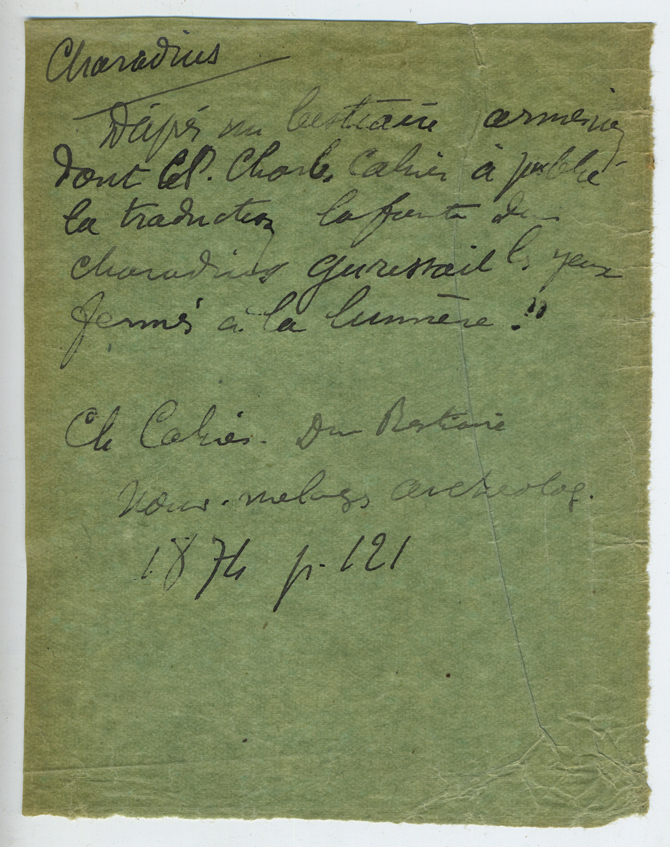 Charadius
D'après un bestiaire arménien
dont le P. Charles Cahier a publié
la traduction la fiente du
charadrius guérissait les yeux
fermés à la lumière !!
Ch Cahier. Du Bestiaire
Nouv. melanges archeolog.
1874 p. 121